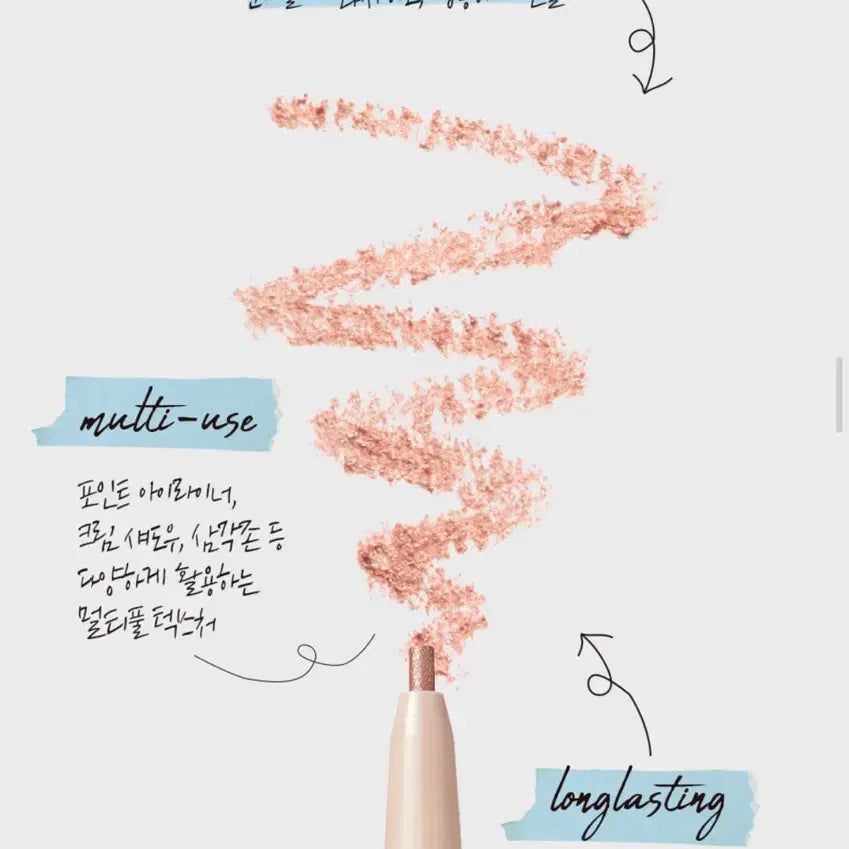 multi-use
포인트 아이라이너,
크림 섀도우, 삼각존 등
다양하게 활용하는
멀티풀 텍스처
longlasting